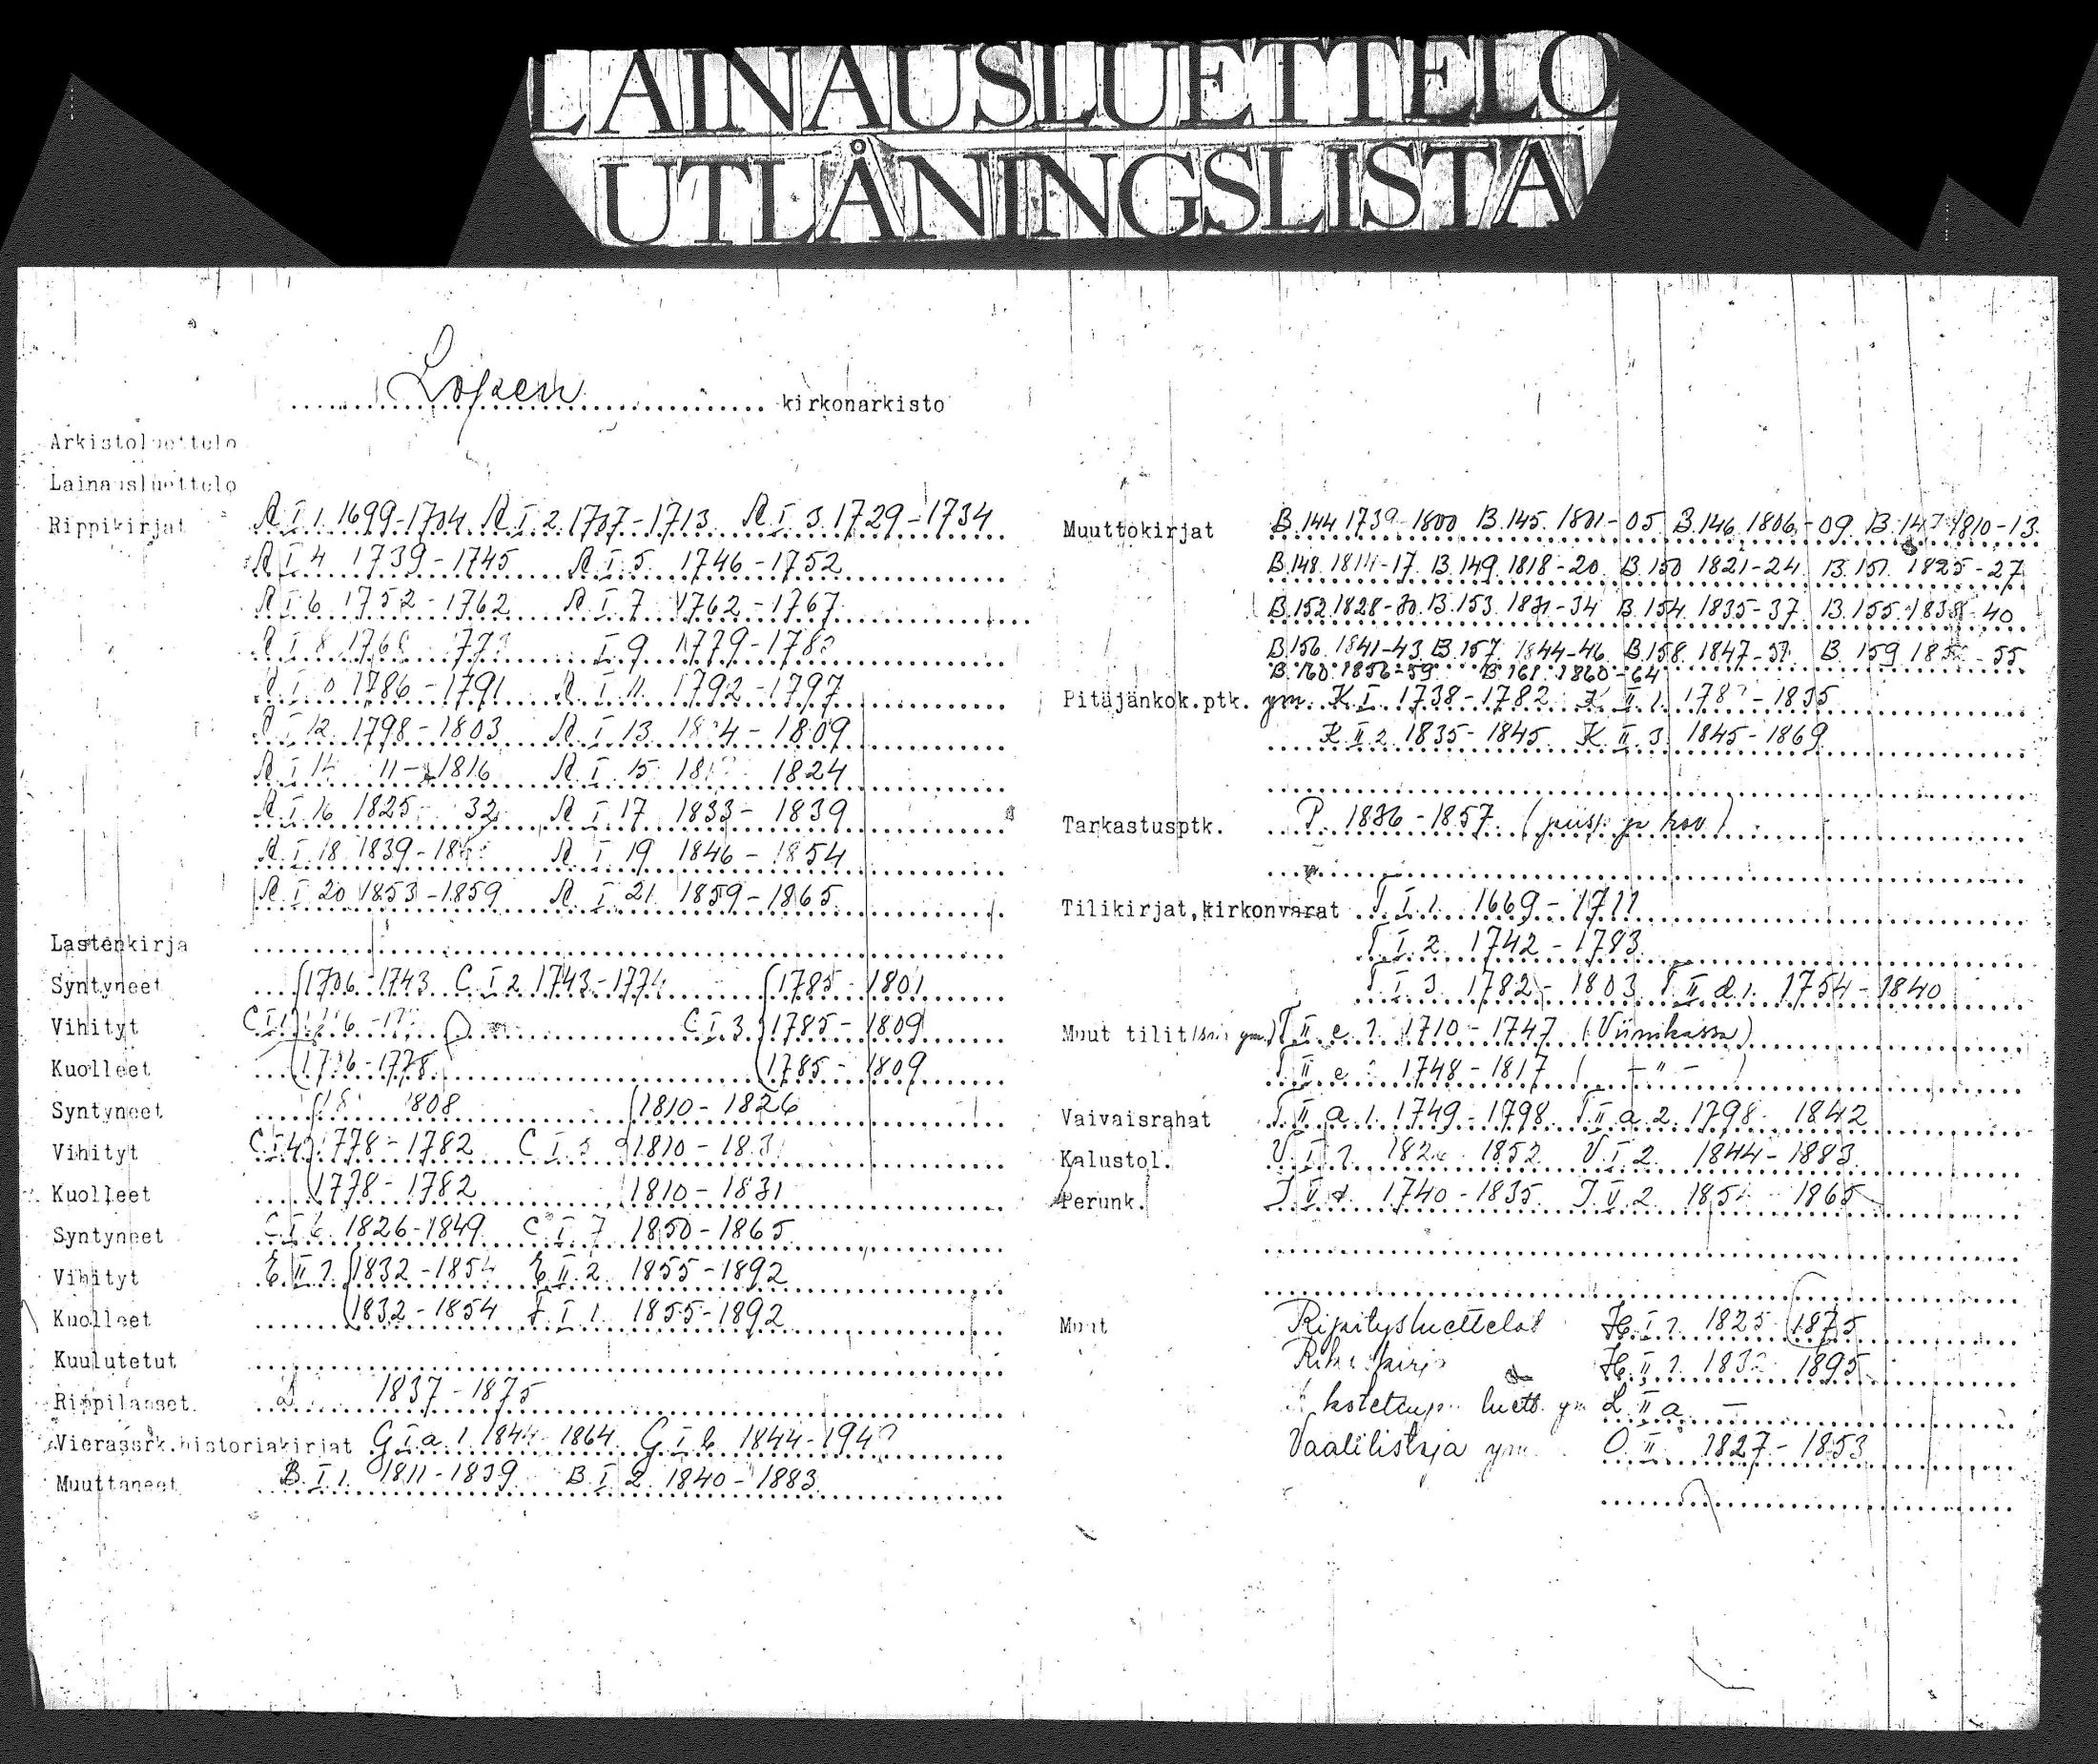 LAINAUSLUETTELO
UTLÅNINGSLISTA
Lopen kirkonarkisto
Arkistoluettelo
Lainausluettelo
Rippikirjat A I 1. 1699-1704 A I 2. 1707-1713 A I 3. 1729-1734
A I 4 1739-1745 A I 5. 1746-1752
A I 6 1752-1762 A I 7 1762-1767
A I 8 I 9 1779-
1786-1791 A I 11. 1792-1797
A I 12. 1798-1803 A I 13 - 1809
A I 14 - 1816 A I 15 1824
A I 16 1825- 32 A I 17 1833-1839
A I 18 1839- A I 19 1846-1854
A I 20 1853-1859 A I 21. 1859-1865
Lastenkirja
Syntyneet 1706-1743 C I 2 1743- 1785-1801
Vihityt C I 1 C I 3 1785-1809
Kuolleet 1785-1809
Syntyneet 1808 1810-1826
Vihityt C I 4 1778-1782 C I 1810-
Kuolleet 1778-1782 1810-1831
Syntyneet C I 6 1826-1849 C I 7 1850-1865
Vihityt E II 1. 1832-1854 E II 2. 1855-1892
Kuolleet 1832-1854 F I 1. 1855-1892
Kuulutetut
Rippilapset 1837-1875
Vierassrk.historiakirjat G I a 1. 1844- 1864 G I b 1844-
Muuttaneet B I 1. 1811-1839 B I 2. 1840-1883
Muuttokirjat B.144 1739-1800 B.145. 1801-05 B.146 1806-09 B.147 1810-13.
B.148. 1814-17. B.149 1818-20. B.150 1821-24. B.151. 1825-27
B.152 1828-30. B.153. 1831-34 B.154. 1835-37. B.155. 1838-40
B.156. 1841-43 B.157. 1844-46 B.158 1847-51 B.159 -55
B.160. 1856-59 B.161. 1860-64
Pitäjänkok.ptk. ym. K I. 1738-1782 K II 1. -1835
K II 2. 1835-1845 K II 3. 1845-1869
Tarkastusptk. P. 1836-1857. (piisp. ja rov.)
Tilikirjat,kirkonvarat T I 1. 1669-1711
T I 2. 1742-1783
T I 3. 1782-1803 T II d 1. 1754-1840
Muut tilit ym.) T II e 1. 1710-1747 (Viinikassa)
T II e 1748-1817 ( -"- )
Vaivaisrahat T II a 1. 1749-1798. T II a 2. 1798- 1842
Kalustol. 1852 2. 1844-1883
Perunk. 1740-1835. 2 1865
Muut Ripitysluettelot H I 1. 1825 1875
H II 1. 1895
luett. ym L II a -
Vaalilistoja ym. O II 1827-1853